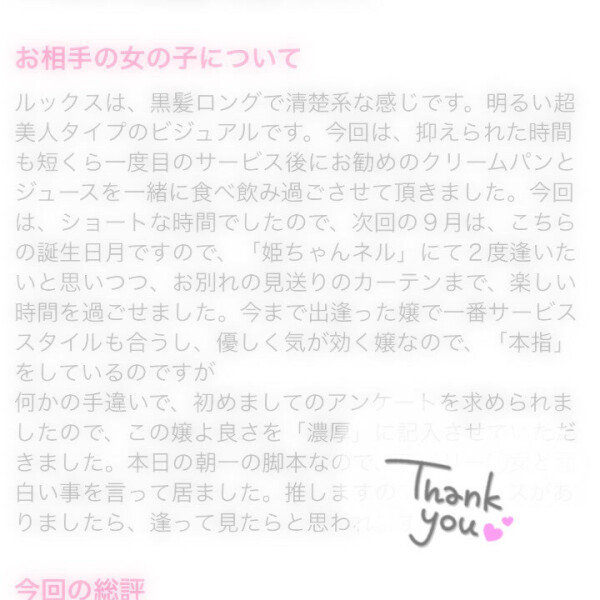 お相手の女の子について
ルックスは、黒髪ロングで清楚系な感じです。明るい超
美人タイプのビジュアルです。今回は、抑えられた時間
も短くら一度目のサービス後にお勧めのクリームパンと
ジュースを一緒に食べ飲み過ごさせて頂きました。今回
は、ショートな時間でしたので、次回の９月は、こちら
の誕生日月ですので、「姫ちゃんネル」にて２度逢いた
いと思いつつ、お別れの見送りのカーテンまで、楽しい
時間を過ごせました。今まで出逢った嬢で一番サービス
スタイルも合うし、優しく気が効く嬢なので、「本指」
をしているのですが
何かの手違いで、初めましてのアンケートを求められま
したので、この嬢よ良さを「濃厚」に記入させていただ
きました。本日の朝一の脚本なので、
白い事を言って居ました。推しますの
りましたら、逢って見たらと思わ
Thank
you
今回の総評